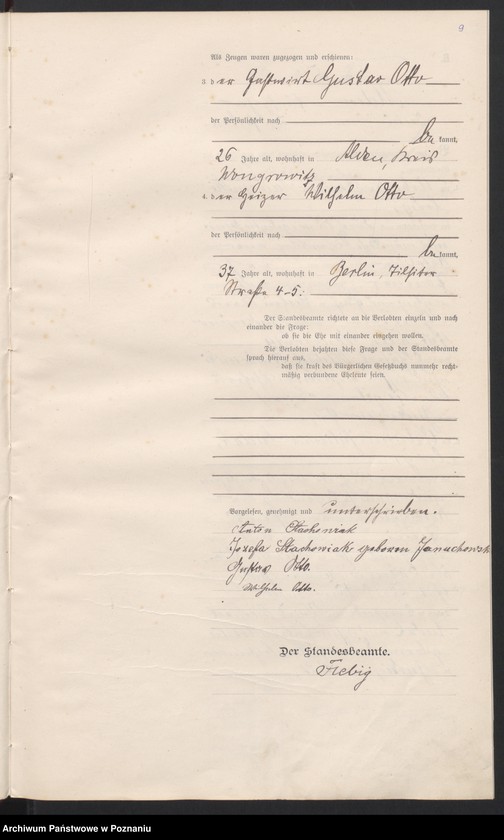 9
Als Zeugen waren zugezogen und erschienen:
3. der Gastwirt Gustav Otto
der Persönlichkeit nach
be kannt,
26 Jahre alt, wohnhaft in Alden, Kreis
Wongrowitz
4. der Heizer Wilhelm Otto
der Persönlichkeit nach
be kannt,
37 Jahre alt, wohnhaft in Berlin, Tilsiter
Straße 4-5.
Der Standesbeamte richtete an die Verlobten einzeln und nach
einander die Frage:
ob sie die Ehe mit einander eingehen wollen.
Die Verlobten bejahten diese Frage und der Standesbeamte
sprach hierauf aus,
daß sie kraft des Bürgerlichen Gesetzbuchs nunmehr recht-
mäßig verbundene Eheleute seien.
Vorgelesen, genehmigt und unterschrieben.
Anton Stachowiak
Jozefa Stachowiak geboren
Gustav Otto.
Wilhelm Otto.
Der Standesbeamte.
Fiebig
Archiwum Państwowe w Poznaniu